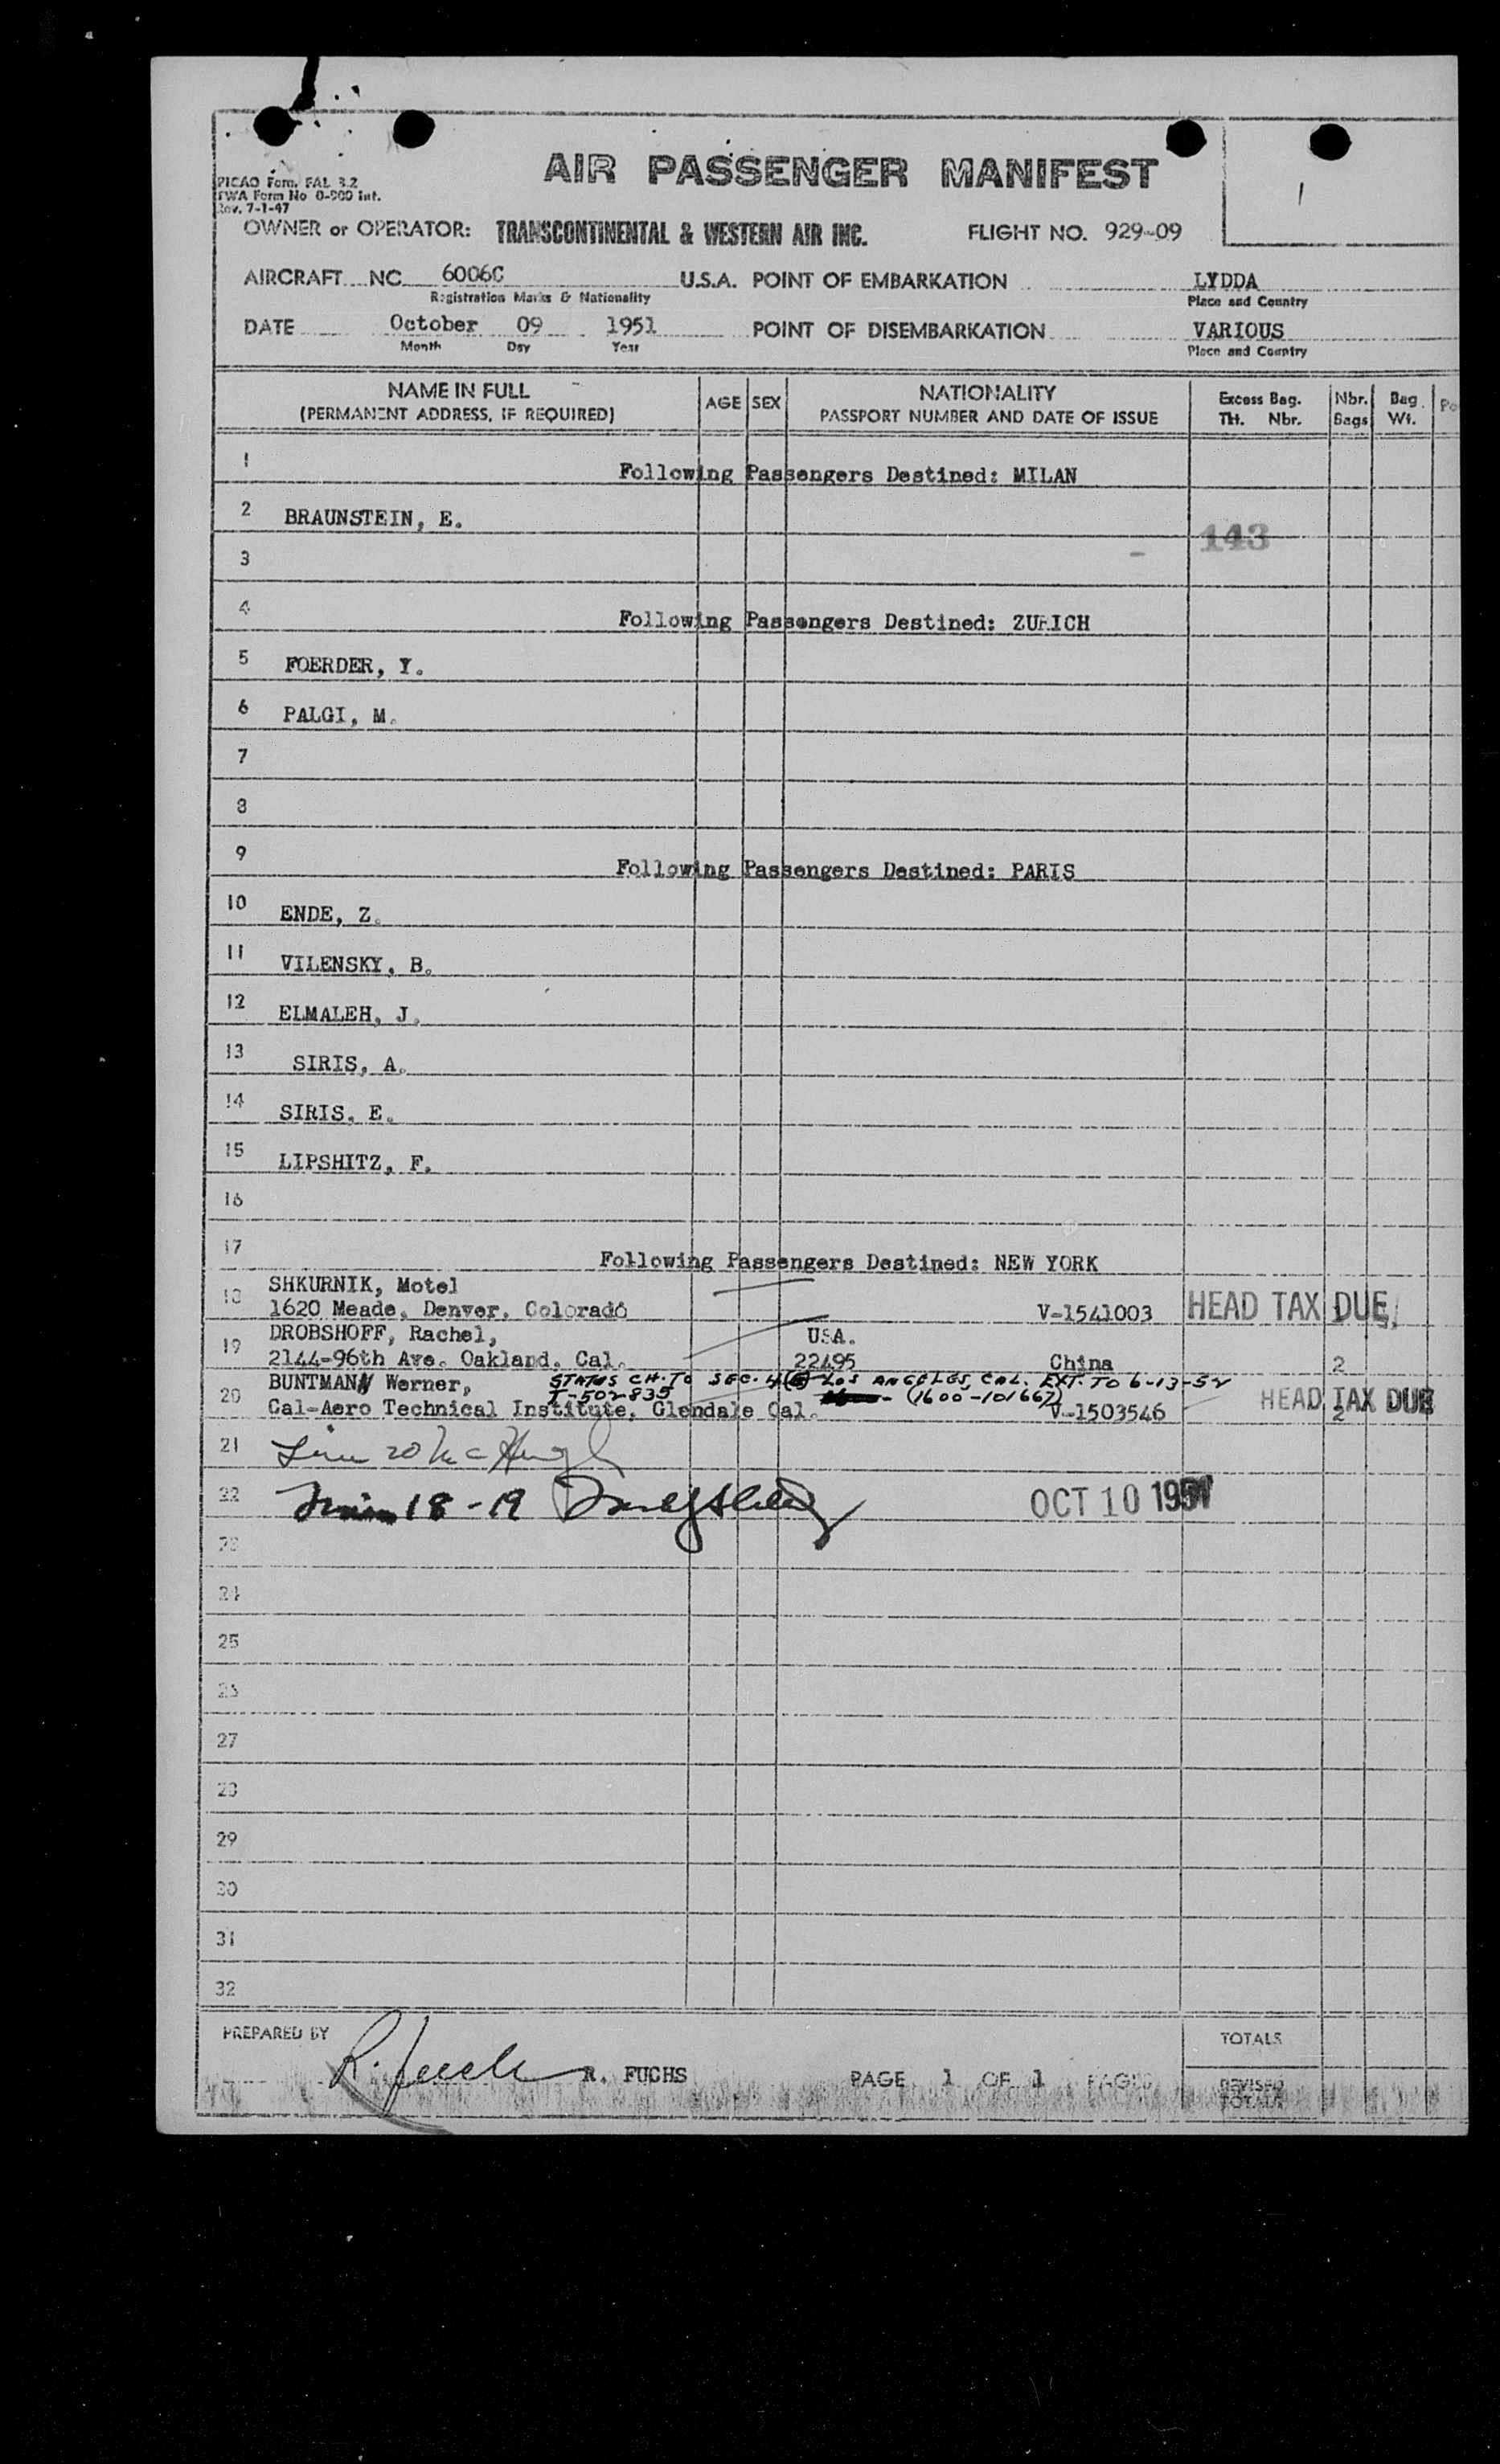 AIR PASSENGER MANIFEST
PICAO Form FAL 3.2
TWA Form No 0-900 Int.
Rev. 7-1-47
OWNER or OPERATOR: TRANSCONTINENTAL & WESTERN AIR INC. FLIGHT NO. 929-09
AIRCRAFT NC 6006C U.S.A. POINT OF EMBARKATION LYDDA
Registration Marks & Nationality Place and Country
DATE October 09 1951 POINT OF DISEMBARKATION VARIOUS
Month Day Year Place and Country
NAME IN FULL AGE SEX NATIONALITY Excess Bag. Nbr. Bag
(PERMANENT ADDRESS, IF REQUIRED) PASSPORT NUMBER AND DATE OF ISSUE Tkt. Nbr. Bags Wt.
1 Following Passengers Destined: MILAN
2 BRAUNSTEIN, E.
143
3
4 Following Passengers Destined: ZURICH
5 FOERDER, Y.
6 PALGI, M.
7
8
9 Following Passengers Destined: PARIS
10 ENDE, Z.
11 VILENSKY, B.
12 ELMALEH, J.
13 SIRIS, A.
14 SIRIS, E.
15 LIPSHITZ, F.
16
17 Following Passengers Destined: NEW YORK
SHKURNIK, Motel
18 1620 Meade, Denver, Colorado V-1541003 HEAD TAX DUE
DROBSHOFF, Rachel, USA.
19 2144-96th Ave. Oakland, Cal. 22495 China 2
BUNTMANN Werner, STATUS CH. TO SEC. 4(E) LOS ANGELES, CAL. EXT. TO 6-13-52
T-502835 (1600-101667)
20 Cal-Aero Technical Institute, Glendale Cal. V-1503546 HEAD TAX DUE 2
21 Line 20 McHugh
22 18-19 OCT 10 1951
23
24
25
26
27
28
29
30
31
32
PREPARED BY TOTALS
R. Fuchs R. FUCHS PAGE 1 OF 1 PAGES REVISED TOTALS